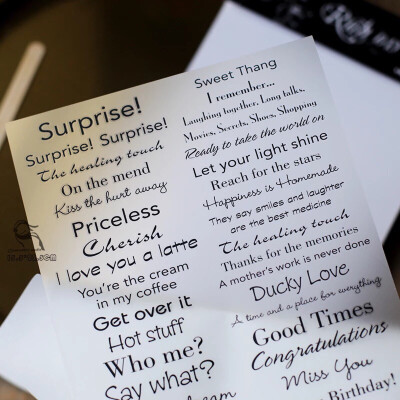 Surprise!
Surprise! Surprise!
The healing touch
On the mend
Kiss the hurt away
Priceless
Cherish
I love you a latte
You're the cream
in my coffee
Get over it
Hot stuff
Who me?
Say what?
Sweet Thang
I remember...
Laughing together, Long talks,
Movies, Secrets, Shoes, Shopping
Ready to take the world on
Let your light shine
Reach for the stars
Happiness is Homemade
They say smiles and laughter
are the best medicine
The healing touch
Thanks for the memories
A mother's work is never done
Ducky Love
A time and a place for everything
Good Times
Congratulations
Miss You
Birthday!